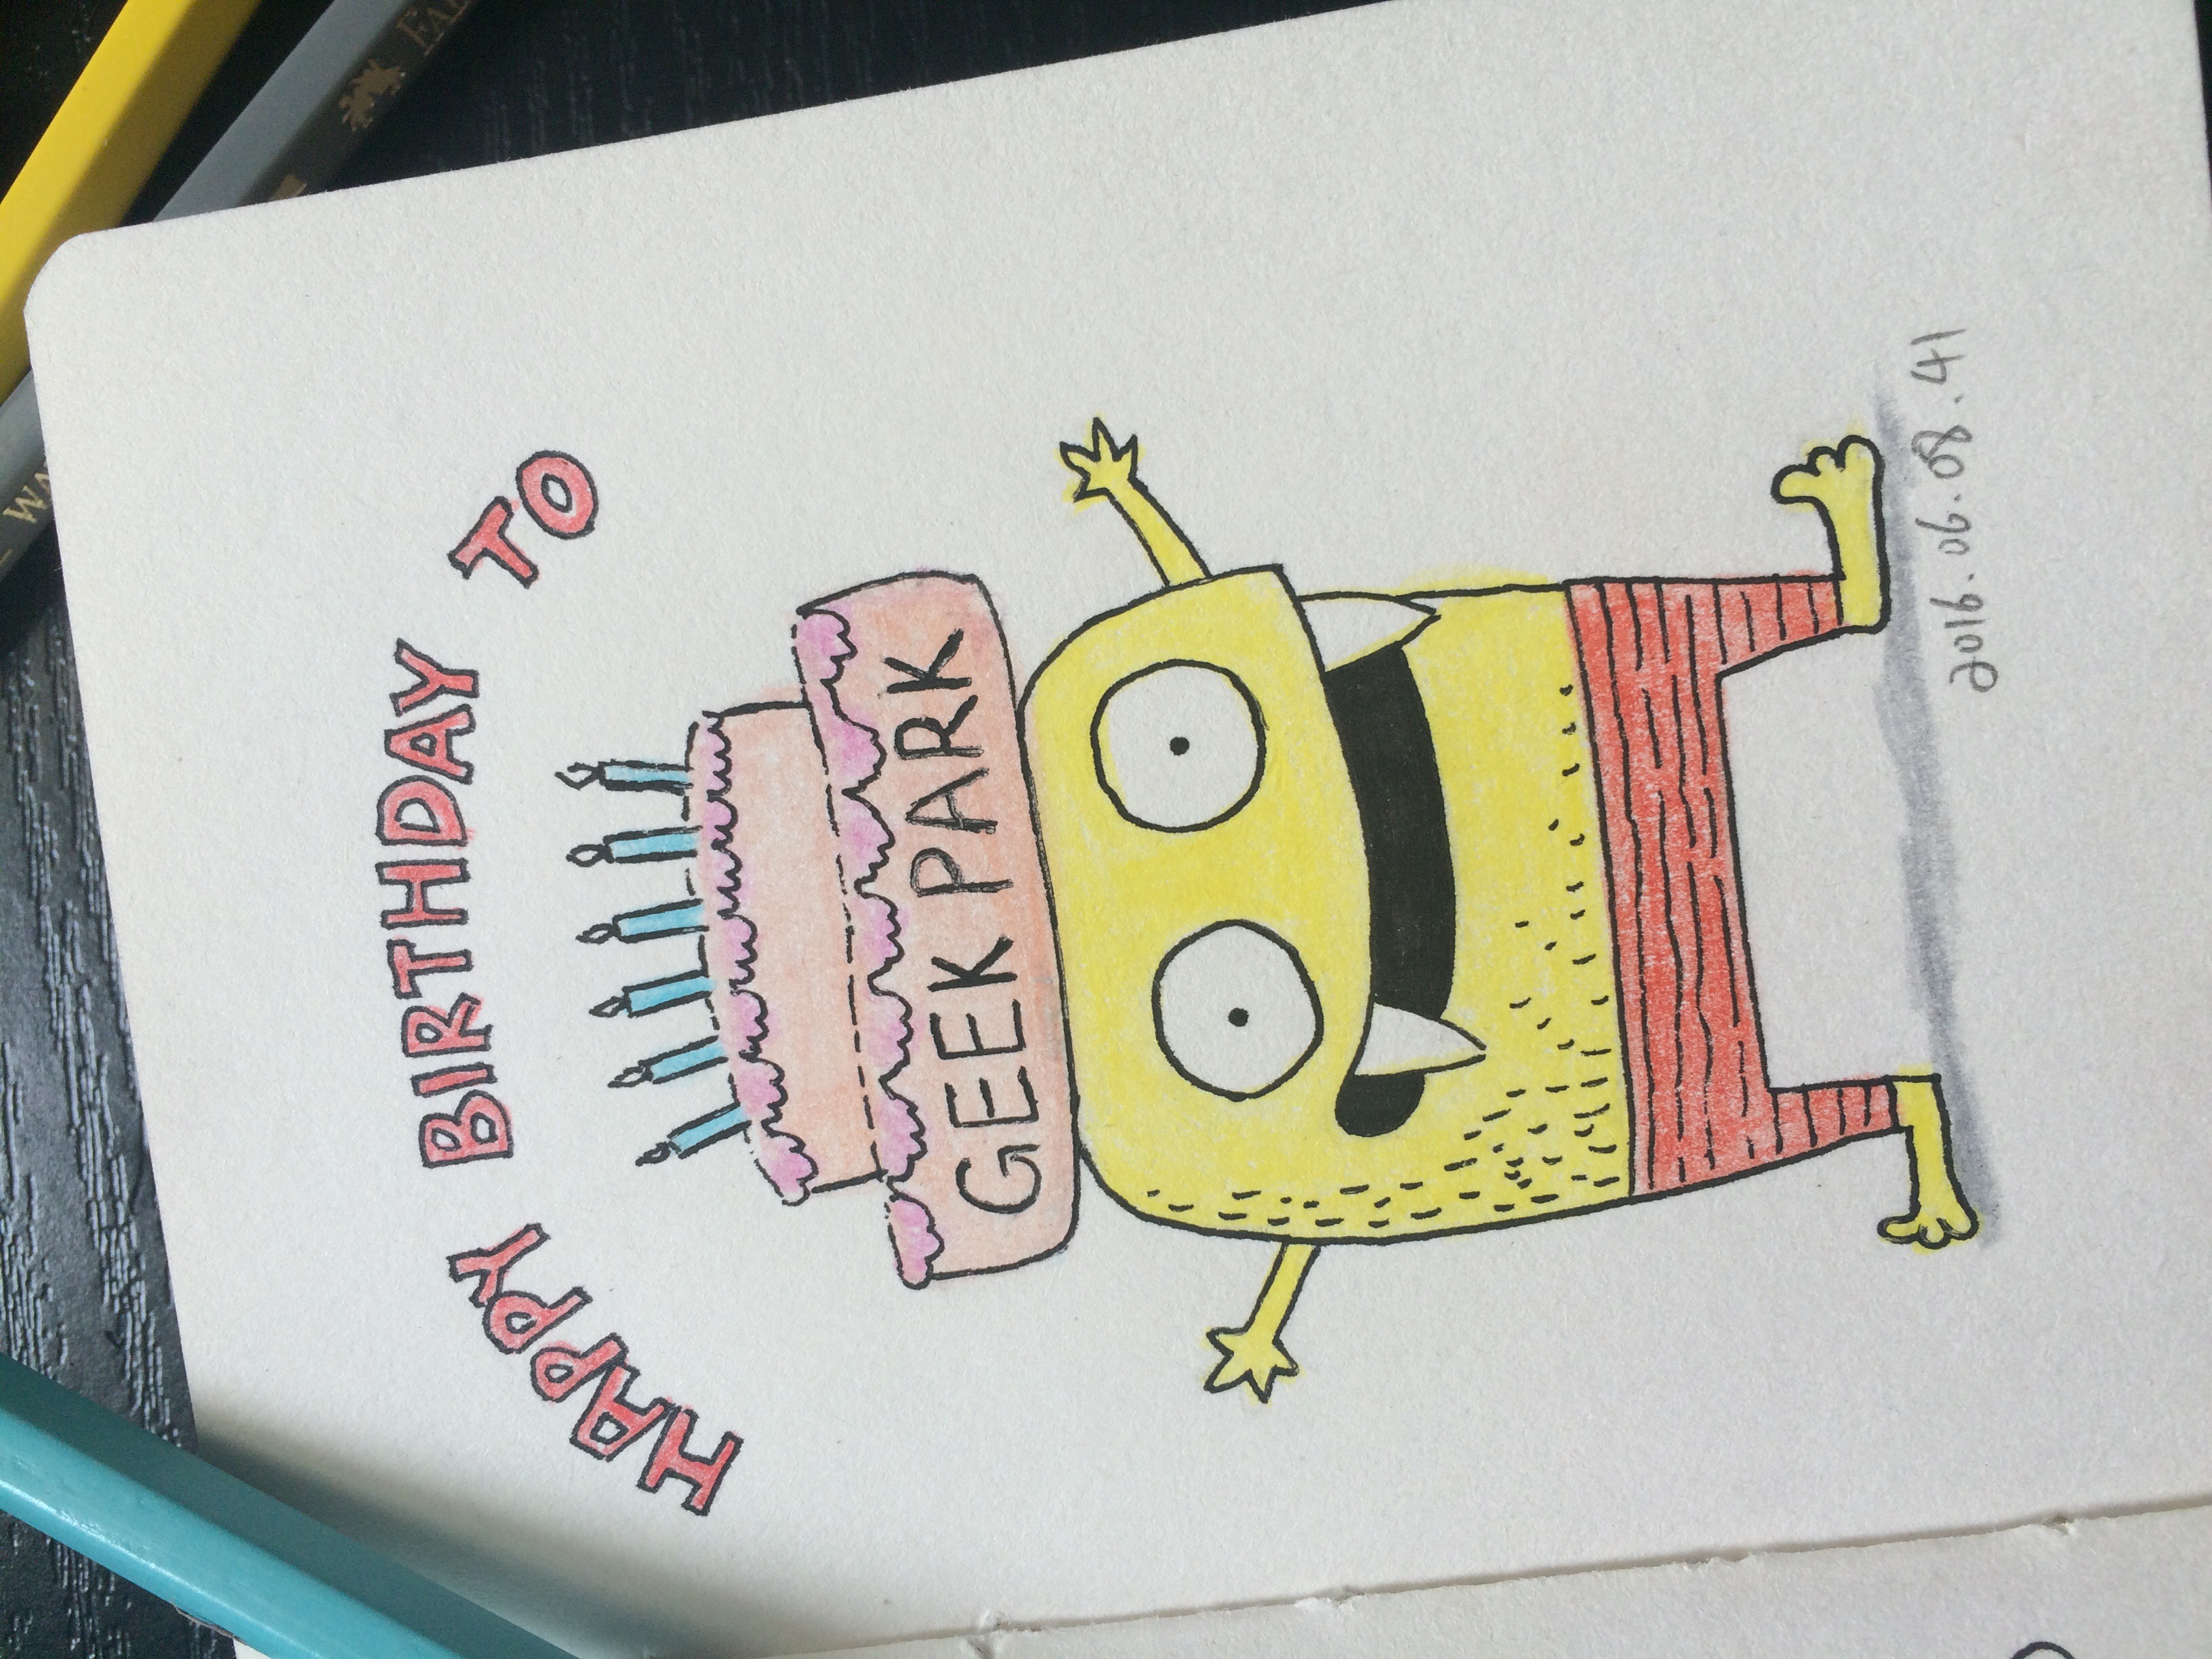 HAPPY BIRTHDAY TO
GEEK PARK
2016.06.08.41
WA
FA